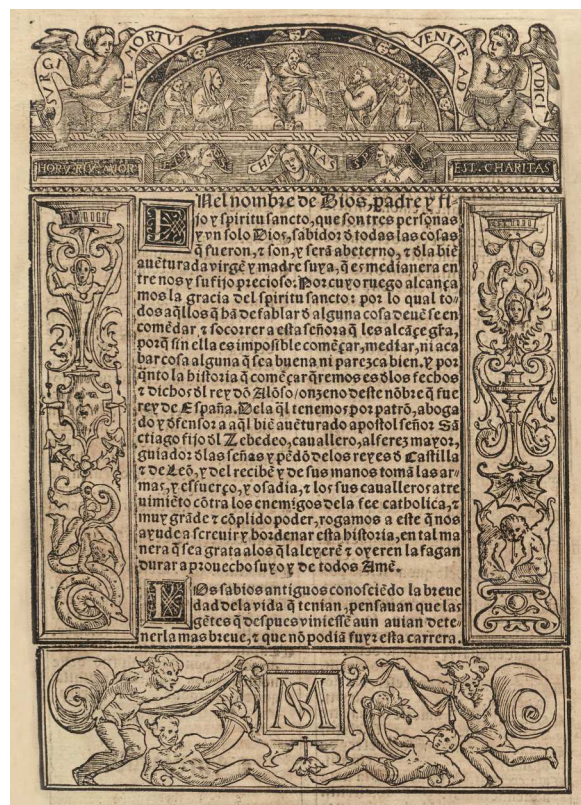 SVRGI
TE MORTVI
VENITE AD
IVDICI
CHARITAS
EST. CHARITAS
EN el nombre de Dios, padre y fi-
jo y spiritu sancto, que son tres personas
y vn solo Dios, sabidor đ todas las cosas
q̃ fueron, ⁊ son, y serã abeterno, ⁊ đla biẽ
auẽturada virgẽ y madre suya, q̃ es medianera en
tre nos y su fijo precioso: Por cuyo ruego alcança
mos la gracia del spiritu sancto: por lo qual to-
dos aq̃llos q̃ hã de fablar đ alguna cosa deuẽ se en
comẽdar, ⁊ socorrer a esta señora q̃ les alcãçe gr̃a,
porq̃ sin ella es imposible comẽçar, mediar, ni aca
bar cosa alguna q̃ sea buena ni parezca bien. Y por
q̃nto la historia q̃ comẽçar q̃remos es đlos fechos
⁊ dichos đl rey dõ Alõso/onzeno deste nõbre q̃ fue
rey de España. Dela q̃l tenemos por patrõ, aboga
do y đfensor a aq̃l biẽ auẽturado apostol señor Sã
ctiago fijo đl Zebedeo, cauallero, alferez mayor,
guiador đlas señas y pẽdõ delos reyes đ Castilla
⁊ de Leõ, y del recibẽ y de sus manos tomã las ar-
mas, y esfuerço, y osadia, ⁊ los sus caualleros atre
uimiẽto cõtra los enemigos dela fee catholica, ⁊
muy grãde ⁊ cõplido poder, rogamos a este q̃ nos
ayude a screuir y bordenar esta historia, en tal ma
nera q̃ sea grata alos q̃ la leyerẽ ⁊ oyeren la fagan
durar a prouecho suyo y de todos Amẽ.
LOs sabios antiguos conosciẽdo la breue
dad dela vida q̃ tenian, pensauan que las
gẽtes q̃ despues viniessẽ aun auian dete-
nerla mas breue, ⁊ que nõ podiã fuyr esta carrera.
SM